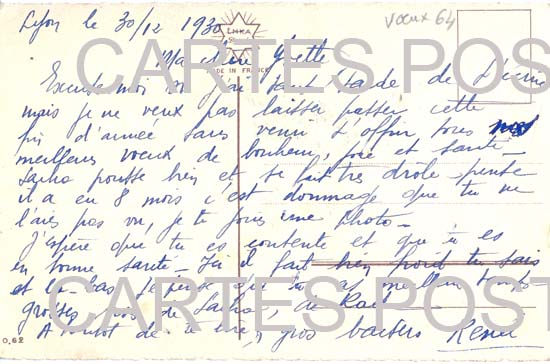 Lyon le 30/12 1930
voeux 64
LMKA
Ma chère Yvette
MADE IN FRANCE
CARTES POST
Excuse moi si j'ai tant tardé de t'écrire
mais je ne veux pas laisser passer cette
fin d'année sans venir t'offrir tous mes
meilleurs voeux de bonheur, joie et santé -
Sacha pousse bien et se fait très drôle
il a eu 8 mois c'est dommage que tu ne
l'aies pas vu, je te joins une photo -
J'espère que tu es contente et que tu es
en bonne santé - Ici il fait bien froid tu sais
et là-bas je pense que tu as meilleur temps -
Grosses de Sacha, de
CARTES POST
0.62
A bientôt de te lire, gros baisers